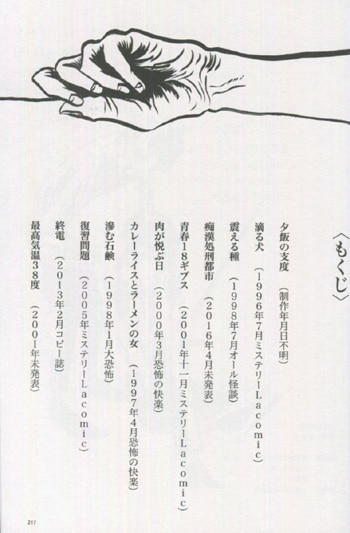 〈もくじ〉
夕飯の支度 (制作年月日不明)
滴る犬 (1996年7月ミステリーLacomic)
震える種 (1998年7月オール怪談)
痴漢処刑都市 (2016年4月未発表)
青春18ギプス (2001年十一月ミステリーLacomic)
肉が悦ぶ日 (2000年3月恐怖の快楽)
カレーライスとラーメンの女 (1997年4月恐怖の快楽)
滲む石鹸 (1998年1月大恐怖)
復習問題 (2005年ミステリーLacomic)
終電 (2013年2月コピー誌)
最高気温38度 (2001年未発表)
211